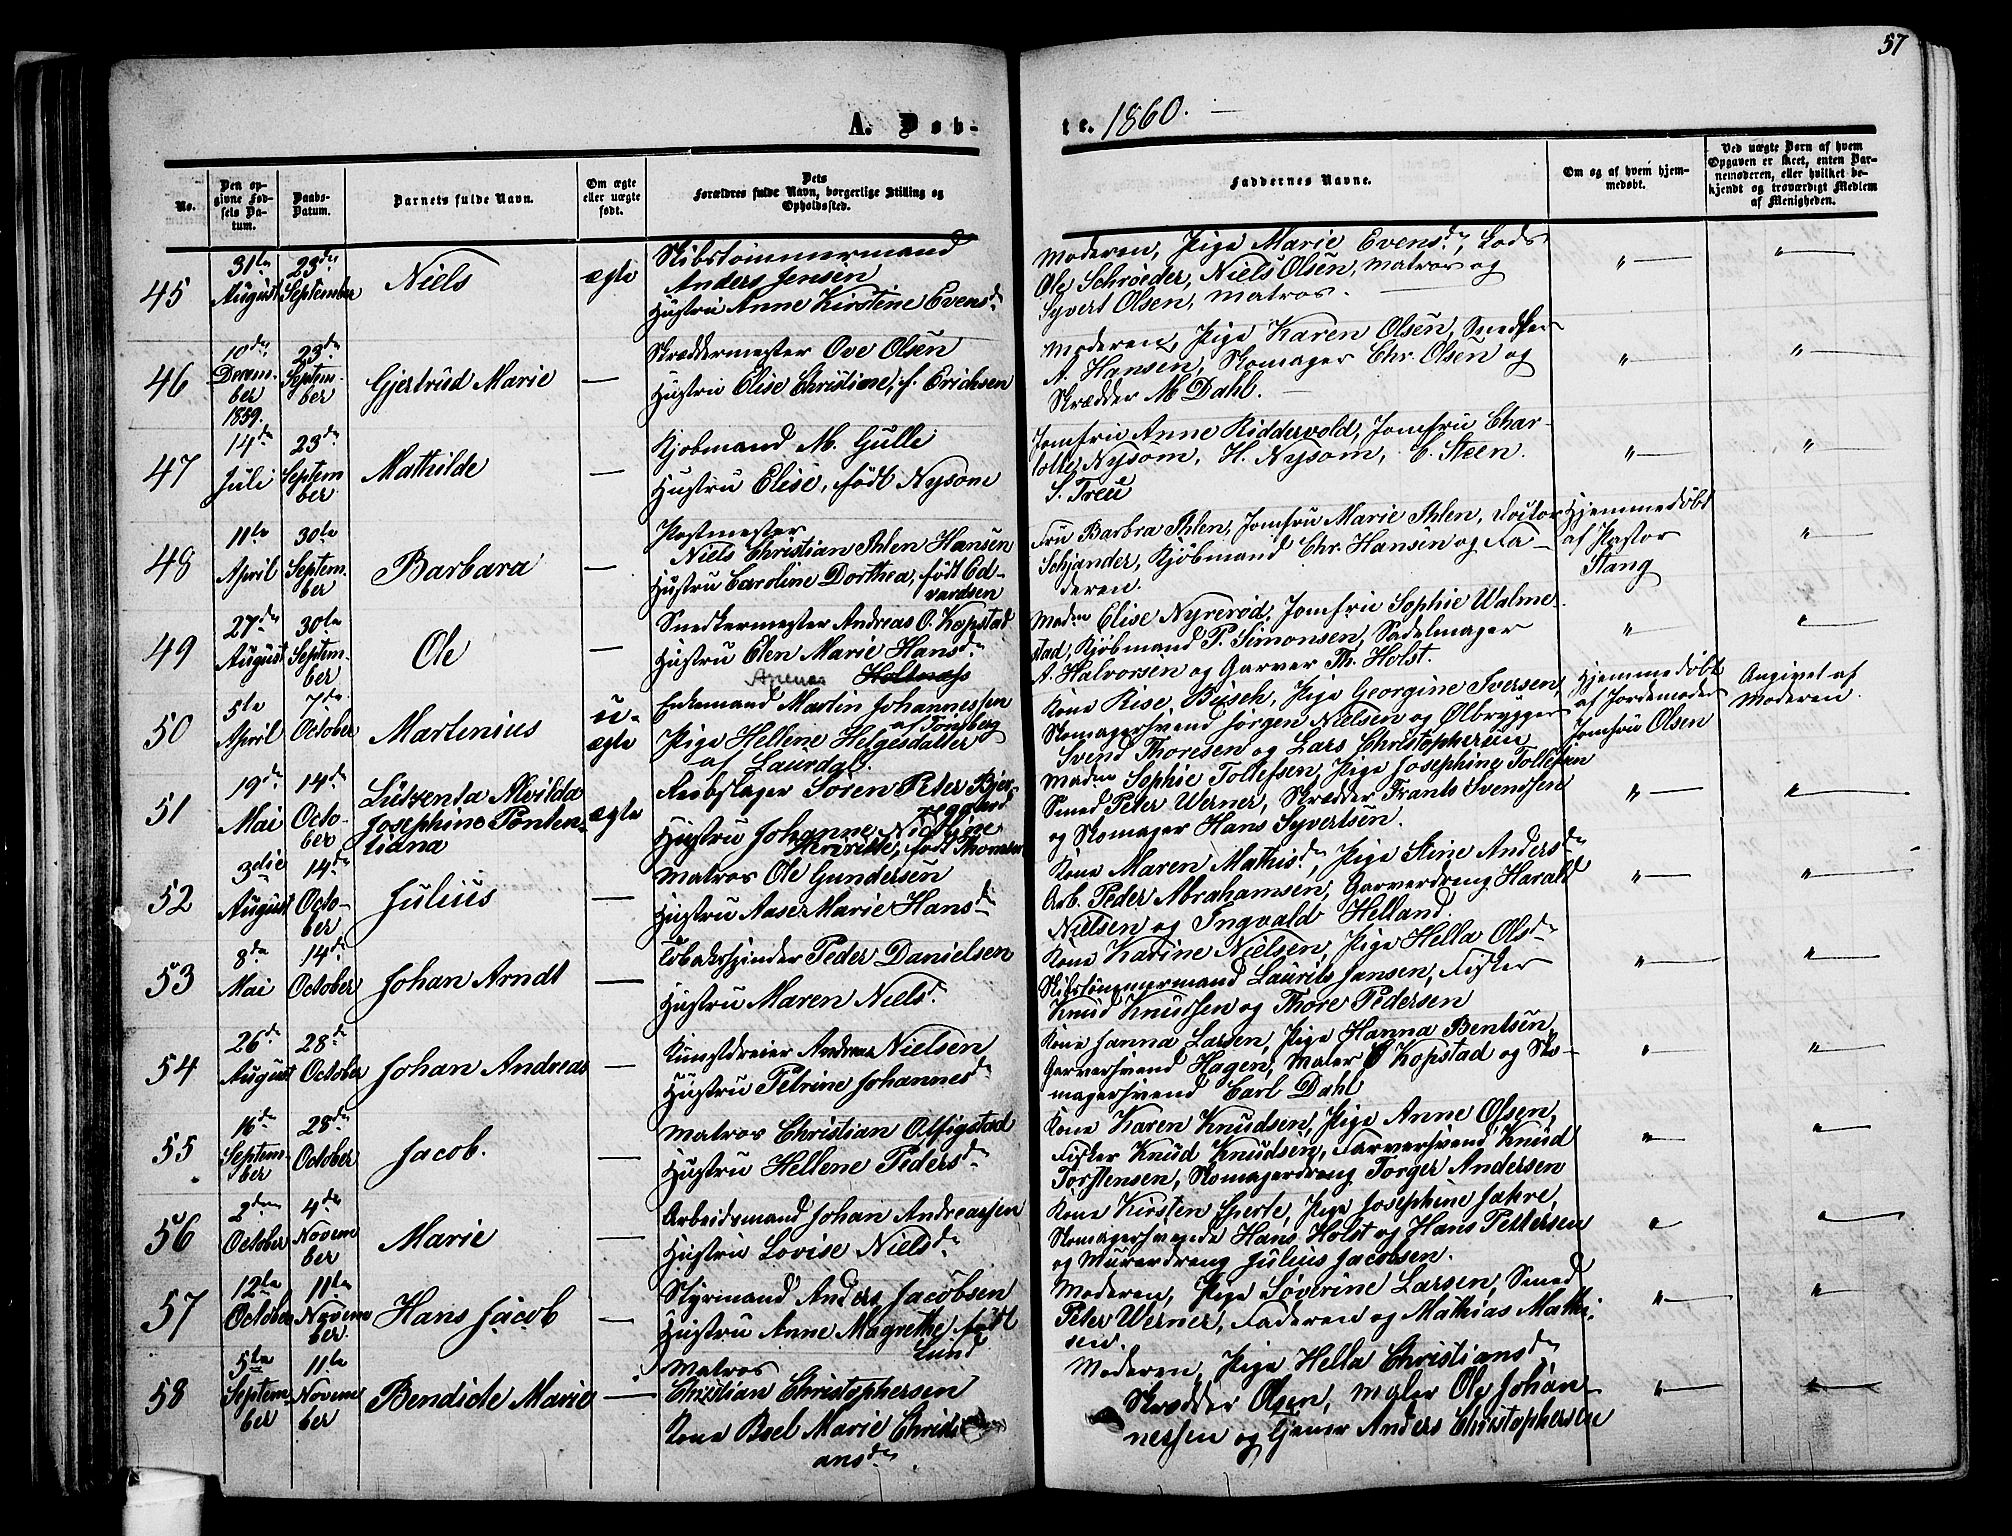 57
A. Døb-
te. 1860.
No.
Den op-
givne Fød-
sels Da-
tum.
Daabs-
Datum.
Barnets fulde Navn.
Om ægte
eller uægte
født.
Dets
Forældres fulde Navn, borgerlige Stilling og
Opholdssted.
Faddernes Navne.
Om og af hvem hjem-
medøbt.
Ved uægte Børn af hvem
Opgaven er skeet, enten Bar-
nemoderen, eller hvilket be-
kjendt og troværdigt Medlem
af Menigheden.
45
31te
August
23de
September
Niels
ægte
Skibstømmermand
Anders Jensen
Hustru Anne Kirstine Evensdr
Moderen, Pige Marie Evensdr, Lods
Ole Schrøeder, Niels Olsen, Matros og
Syvert Olsen, Matros.
46
10de
Decem-
ber
1859.
23de
Septem-
ber
Gjertrud Marie
Skræddermester Ove Olsen
Hustru Elise Christine, f. Erichsen
Moderen, Pige Karen Olsen,
A. Hansen, Skomager Chr. Olsen og
Skrædder M Dahl.
47
14de
Juli
23de
Septem
ber
Mathilde
Kjøbmand M. Gulli
Hustru Elise, født Nysom
Jomfru Anne Riddervold, Jomfru Char-
lotte Nysom, H. Nysom, C. Steen
S. Treu
48
11te
April
30te
Septem-
ber
Barbara
Postmester
Niels Christian Ihlen Hansen
Hustru Caroline Dorthea, født Ed-
vardsen
Fru Barbra Ihlen, Jomfru Marie Ihlen, Doctor
Schjander, Kjøbmand Chr. Hansen og Fa-
deren.
Hjemmedøbt
af Pastor
Stang
49
27de
August
30te
Septem-
ber
Ole
Snedkermester Andreas O. Kopstad
Hustru Elen Marie Hansdr
Holtnæss
Madm Elise Nyrerød, Jomfru Sophie Walme-
stad, Kjøbmand P. Simonsen, Sadelmager
A. Halvorsen og Garver Th. Holst.
50
5te
April
7de
October
Martinius
u-
ægte
Enkemand Martin Johannessen
af Tønsberg
Pige Hellene Helgesdatter
af Laurdal.
Kone Rise, Beisch, Pige Georgine Iversen,
Skomagersvend Jørgen Nielsen og Ølbrygger
Svend Thoresen og Lars Christophersen
Hjemmedøbt
af Jordemoder
Jomfru Olsen
Angivet af
Moderen.
51
19de
Mai
14de
Octo-
ber
Lutzenta Alvilda
Josephine Ponten-
tiana
ægte
Rebslager Soren Peter Bjer-
regaard
Hustru Johanne Nicoline
født Thomsen
Madm Sophie Tollefsen, Pige Josephine Tollefsen
Smed Peter Werner, Skrædder Frants Svendsen
og Skomager Hans Syvertsen.
52
3die
August
14de
Octo-
ber
Julius
Matros Ole Gundersen
Hustru Aase Marie Hansdr
Kone Maren Mathisdr, Pige Stine Andersdr
Arb. Peder Abrahamsen, Garverdreng Harald
Nielsen og Ingvald Helland.
53
8de
Mai
14de
October
Johan Arndt
Tobaksspinder Peder Danielsen
Hustru Maren Nielsd.
Kone Karine Nielsen, Pige Hella Olsdr
Skibstømmermand Laurits Jansen, Fisker
Knud Knudsen og Thore Pedersen
54
26de
August
28de
October
Johan Andreas
Kunstdreier Andreas Nielsen
Hustru Petrine Johannesdr
Kone Janna Larsen, Pige Hanna Bentsen,
Garversvend Hagen, Maler Kopstad og Sko-
magersvend Carl Dahl
55
16de
Septem-
ber
28de
October
Jacob.
Matros Christian
Hustru Hellene Pedersdr
Kone Karen Knudsen, Pige Anne Olsen,
Fisker Knud Knudsen, Farversvend Knud
Torstensen, Skomagerdreng Torger Andersen
56
2den
October
4de
Novem
ber
Marie
Arbeidsmand Johan Andreassen
Hustru Lovise Nielsdr
Kone Kirsten Sperle, Pige Josephine Jahre,
Skomagersvende Hans Holst og Hans Pettersen
og Murerdreng Julius Jacobsen.
57
12te
October
11te
Novem
ber.
Hans Jacob
Styrmand Anders Jacobsen
Hustru Anne Magrethe, født
Lund
Moderen, Pige Søverine Larsen, Smed
Peter Werner, Faderen og Mathias Mathi-
sen.
58
5te
Septem-
ber
11te
Novem
ber
Bendicte Marie
Matros
Christian Christophersen
Kone Boel Marie Christi
ansdr
Moderen, Pige Hella Christiansdr
Skrædder Olsen, Maler Ole Johan-
nessen og Anders Christophersen